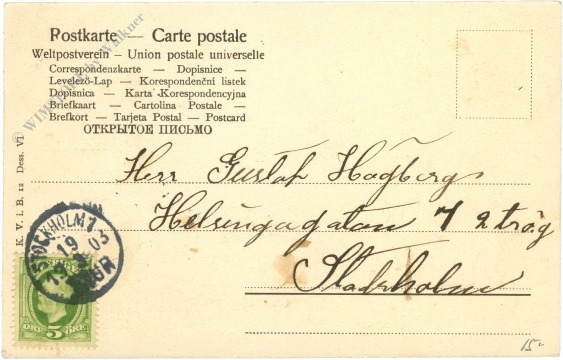 Postkarte — Carte postale
Weltpostverein – Union postale universelle
Correspondenzkarte — Dopisnice —
Levelező-Lap — Korespondenční listek
Dopisnica — Karta Korespondencyjna
Briefkaart — Cartolina Postale —
Brefkort — Tarjeta Postal — Postcard
ОТКРЫТОЕ ПИСЬМО
K. V. i. B. 12 Dess. VI
Herr Gustaf Hagberg
Helsingagatan 7 2 trög
Stockholm
STOCKHOLM 1
19 03
ÖRE 5 ÖRE
15